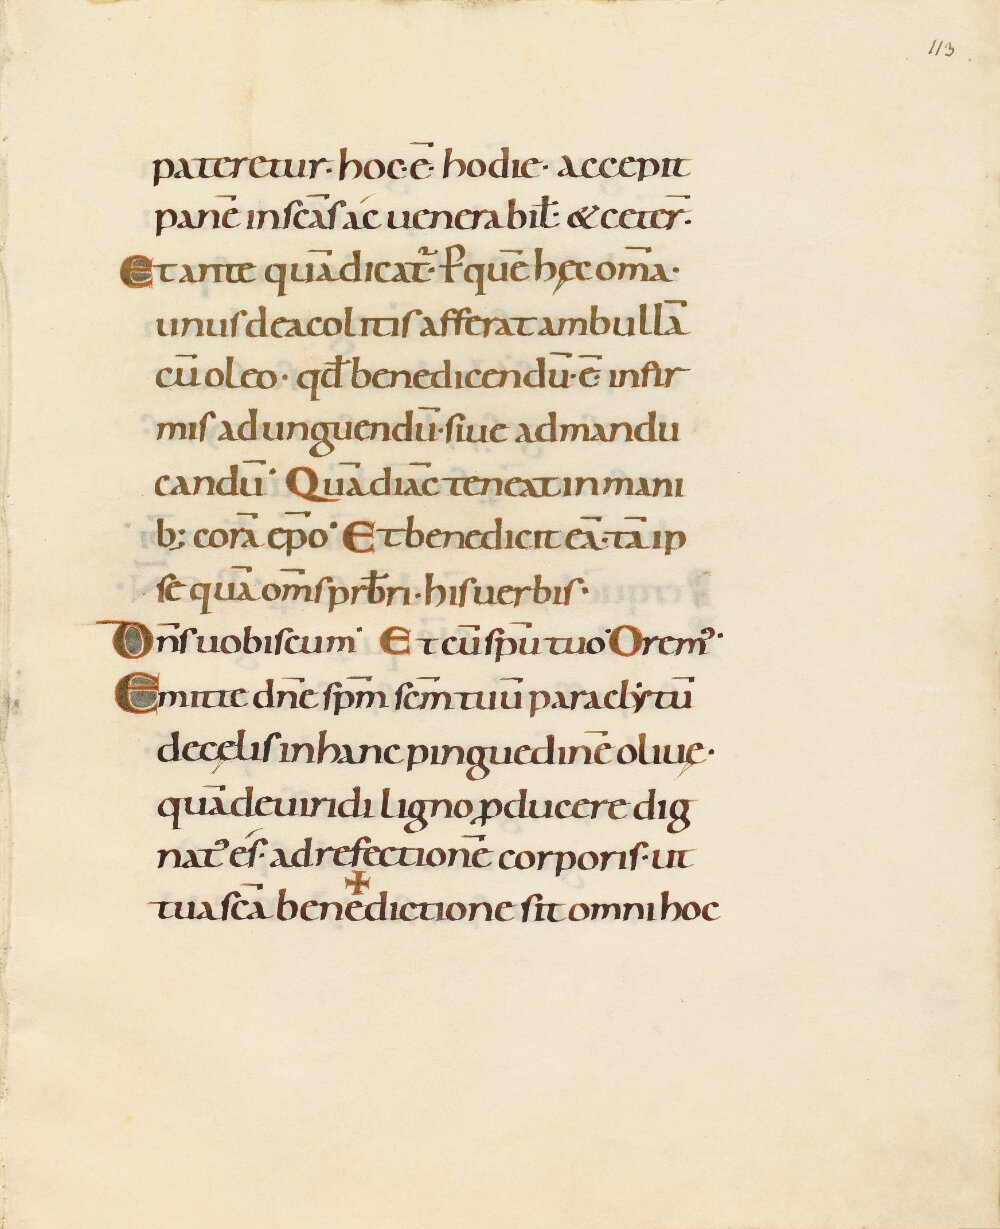 113
pateretur· hoc·ē· hodie· accepit
panē in scās ác uenerabił· & ceter̄·
Et ante quā dicat᷑· P̄ quē hęc om̄a·
unus de acolitis afferat ambullā
cū oleo· qđ benedicendū·ē· infir
mis ad unguendū· siue ad mandu
candū· Quā diac̄ teneat in mani
b; corā ep̄o· Et benedicit eā· tā ip
se quā om̄s prƀri· his uerbis·
Dn̄s uobiscum· Et cū sp̄u tuo· Orem᾽·
Emitte dn̄e sp̄m sc̄m tuū paraclẏtū
de cęlis in hanc pinguedinē oliuę·
quā de uiridi ligno ꝓducere dig
nat᾽ és· ad refectionē corporis· ut
tua sc̄a bene✠dictione sit omni hoc